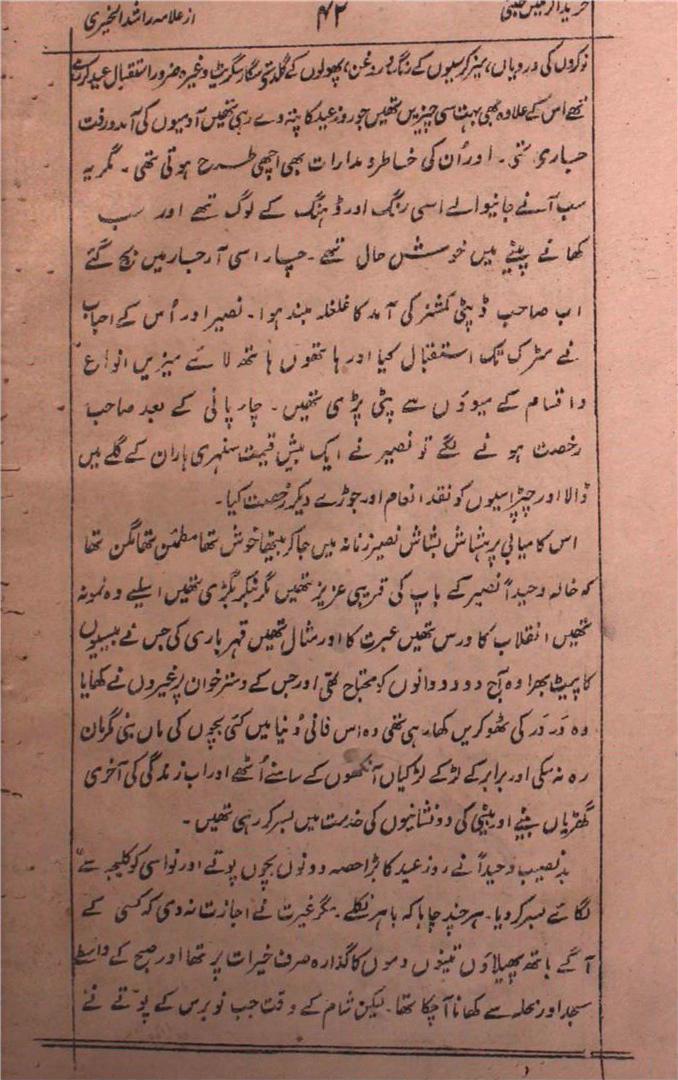 از علامہ راشد الخیری
۴۲
نوکروں کی وردیاں، میز کرسیوں کے رنگ و روغن، پھولوں کے گلدستے سگار سگریٹ وغیرہ ضرور استقبال عید کر رہے
تھے اس کے علاوہ بھی بہت سی چیزیں تھیں جو روز عید کا پتہ دے رہی تھیں آدمیوں کی آمد ورفت
جاری تھی۔ اور اُن کی خاطر و مدارات بھی اچھی طرح ہوتی تھی۔ مگر یہ
سب آنے جانیوالے اسی رنگ اور ڈہنگ کے لوگ تھے اور سب
کھانے پینے میں خوش حال تھے۔ چار اسی آر جار میں بج گئے
اب صاحب ڈپٹی کمشنر کی آمد کا غلغلہ بلند ہوا۔ نصیر اور اُس کے احباب
نے سڑک تک استقبال کیا اور ہاتھوں ہاتھ لائے میزیں انواع
و اقسام کے میوؤں سے پٹی پڑی تھیں۔ چار پانی کے بعد صاحب
رخصت ہونے لگے تو نصیر نے ایک بیش قیمت سنہری ہار ان کے گلے میں
ڈالا اور چپڑاسیوں کو نقد انعام اور جوڑے دیکر رخصت کیا۔
اس کامیابی پر ہشاش بشاش نصیر زنانہ میں جا کر بیٹھا خوش تھا مطمئن تھا مگن تھا
کہ خالہ وحیداً نصیر کے باپ کی قریبی عزیز تھیں مگر بگڑی تھیں اسلیے وہ نمونہ
تھیں انقلاب کا درس تھیں عبرت کا اور مثال تھیں قہر باری کی جس نے بیسیوں
کا پیٹ بھرا وہ آج دو دو دانوں کو محتاج تھی اور جس کے دسترخوان پر غیروں نے کھایا
وہ در در کی ٹھوکریں کھا رہی تھی وہ اس فانی دُنیا میں کئی بچوں کی ماں بنی مگر مان
رہ نہ سکی اور برابر کے لڑکے لڑکیاں آنکھوں کے سامنے اُٹھے اور اب زندگی کی آخری
گھڑیاں بیٹے اور بیٹی کی دو نشانیوں کی خدمت میں بسر کر رہی تھیں۔
بدنصیب وحیداً نے روز عید کا بڑا حصہ دونوں بچوں پوتے اور نواسی کو کلیجہ سے
لگائے بسر کر دیا۔ ہر چند چاہا کہ باہر نکلے۔ مگر غیرت نے اجازت نہ دی کہ کسی کے
آگے ہاتھ پھیلاؤں تینوں دموں کا گذارہ صرف خیرات پر تھا اور صبح کے واسطے
مسجد اور محلہ سے کھانا آ چکا تھا۔ لیکن شام کے وقت جب نو برس کے پوتے نے